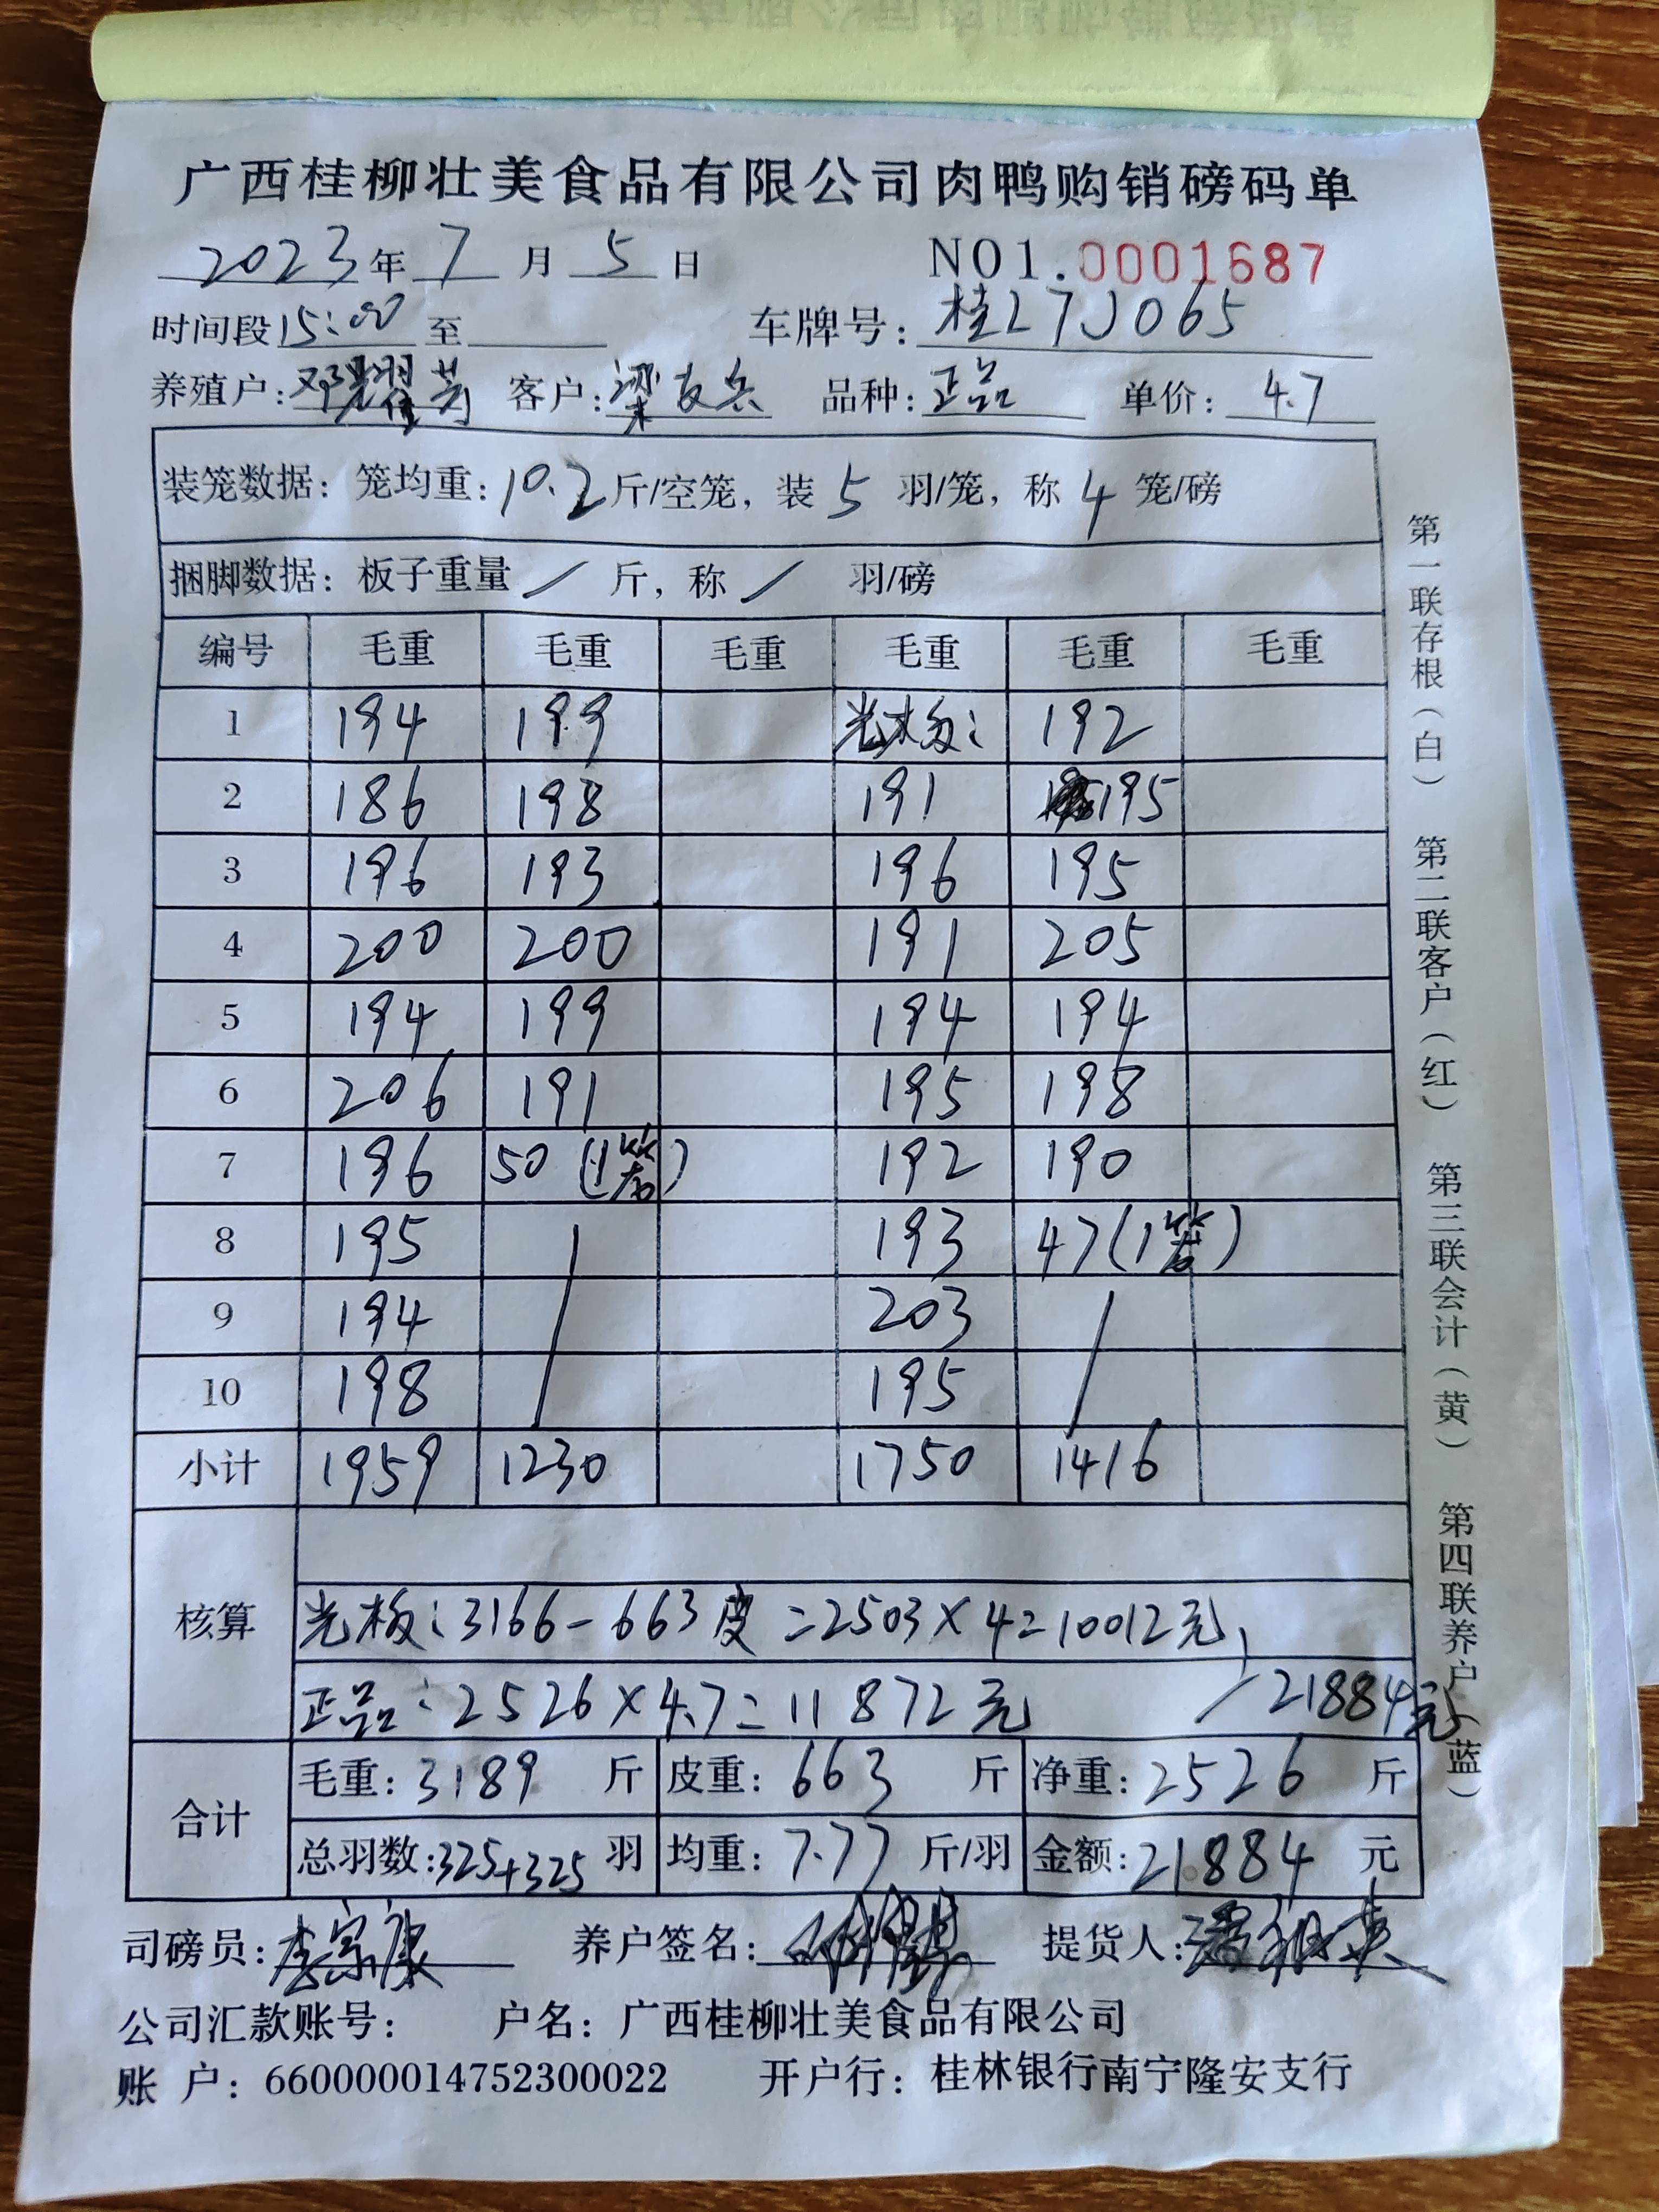 广西桂柳壮美食品有限公司肉鸭购销磅码单
2023年 7 月 5 日 NO1.0001687
时间段 15:00 至 车牌号: 桂L7J065
养殖户: 邓耀芳 客户: 梁友兵 品种: 正品 单价: 4.7
装笼数据: 笼均重: 10.2 斤/空笼, 装 5 羽/笼, 称 4 笼/磅
捆脚数据: 板子重量 / 斤, 称 / 羽/磅
编号 毛重 毛重 毛重 毛重 毛重 毛重
1 194 199 光板: 192
2 186 198 191 195
3 196 193 196 195
4 200 200 191 205
5 194 199 194 194
6 206 191 195 198
7 196 50 (1笼) 192 190
8 195 193 47(1笼)
9 194 203
10 198 195
小计 1959 1230 1750 1416
核算
光板: 3166-663皮=2503×4=10012元
正品: 2526×4.7=11872元 21884元
合计
毛重: 3189 斤 皮重: 663 斤 净重: 2526 斤
总羽数: 325+325 羽 均重: 7.77 斤/羽 金额: 21884 元
司磅员: 李宗康 养户签名: 提货人:
公司汇款账号: 户名: 广西桂柳壮美食品有限公司
账 户: 660000014752300022 开户行: 桂林银行南宁隆安支行
第一联存根(白) 第二联客户(红) 第三联会计(黄) 第四联养户(蓝)